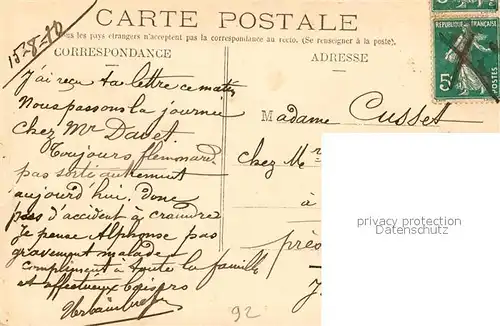 CARTE POSTALE
Tous les pays étrangers n'acceptent pas la correspondance au recto. (Se renseigner à la poste).
CORRESPONDANCE
ADRESSE
REPUBLIQUE FRANÇAISE
5
POSTES
15-8-10
J'ai reçu ta lettre ce matin
Nous passons la journée
chez Mr Davet
Toujours flemmard
pas sorti autrement
aujourd'hui. Donc
pas d'accident à craindre
Je pense Alphonse pas
gravement malade
Compliment à toute la famille
et affectueux
Madame Cusset
chez Me
à
près
privacy protection
Datenschutz
92